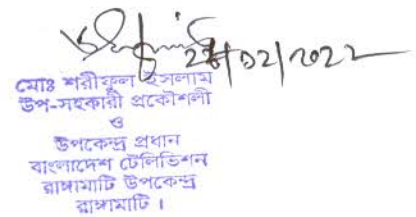 22/02/2022
মোঃ শরীফুল ইসলাম
উপ-সহকারী প্রকৌশলী
ও
উপকেন্দ্র প্রধান
বাংলাদেশ টেলিভিশন
রাঙ্গামাটি উপকেন্দ্র
রাঙ্গামাটি ।